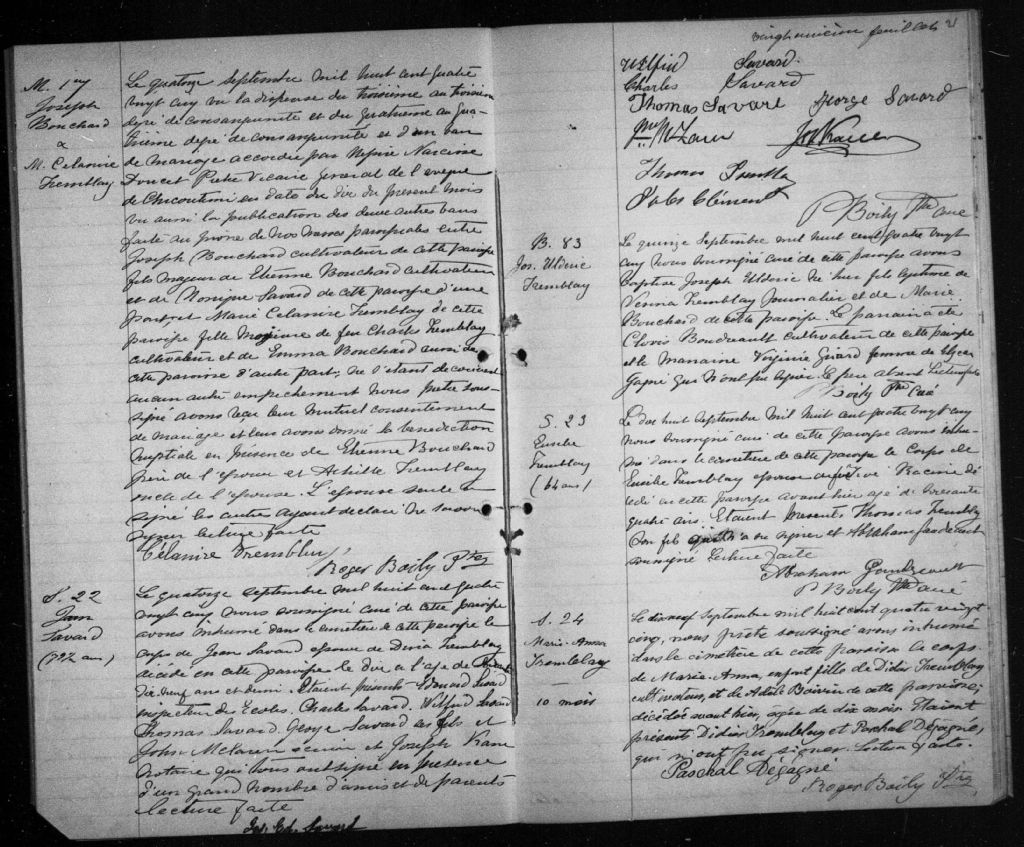 M. 1
Joseph
Bouchard
&
M. Celanire
Tremblay
Le quatorze septembre mil huit cent quatre
vingt cinq vu la dispense du troisième au troisième
degré de consanguinité et du quatrieme au qua-
trième degré de consanguinité et d'un ban
de mariage accordée par Narcisse
Doucet Pretre Vicaire General de l'eveque
de Chicoutimi en date du dix du present mois
vu aussi la publication des deux autres bans
faite au prône de nos messes paroissiales entre
Joseph Bouchard cultivateur de cette paroisse
fils majeur de Etienne Bouchard cultivateur
et de Monique Savard de cette paroisse d'une
part, et Marie Celanire Tremblay de cette
paroisse fille de feu Charles Tremblay
cultivateur et de Emma Bouchard aussi de
cette paroisse d'autre part; ne s'etant decouvert
aucun autre empechement nous pretre sous-
signé avons reçu leur mutuel consentement
de mariage et leur avons donné la benediction
nuptiale en presence de Etienne Bouchard
père de l'epoux et Achille Tremblay
oncle de l'epouse. L'epouse seule a
signé les autres ayant declaré ne savoir
signer lecture faite
Célanire Tremblay
Roger Boily Ptre
S. 22
Jean
Savard
Le quatorze septembre mil huit cent quatre
vingt cinq nous soussigné curé de cette paroisse
avons inhumé dans le cimetiere de cette paroisse le
corps de Jean Savard epoux de Tremblay
décédé en cette paroisse le dix a l'age de
dix neuf ans et demi. Etaient présents Edouard Savard
inspecteur de Ecoles. Charles Savard. Wilfrid Savard
Thomas Savard. George Savard ses fils et
John McLaren et Joseph Kane
notaire qui tous ont signé en presence
d'un grand nombre d'amis et de parents
lecture faite
Jos. Ed. Savard
feuillet 21
Savard
Charles Savard
Thomas Savard George Savard
McLaren Jos Kane
Thomas
Jules Clément
P Boily Ptre curé
B. 83
Jos. Ulderic
Tremblay
Le quinze Septembre mil huit cent quatre vingt
cinq nous soussigné curé de cette paroisse avons
baptisé Joseph Ulderic né hier fils legitime de
Tremblay journalier et de Marie
Bouchard de cette paroisse. Le parrain a été
Clovis Boudreault cultivateur de cette paroisse
et la Marraine Virginie Girard femme de
Gagné qui n'ont pu signer. Le père absent Lecture faite
P Boily Ptre Curé
S. 23
Eusebe
Tremblay
(64 ans)
Le dix huit Septembre mil huit cent quatre vingt cinq
nous soussigné curé de cette paroisse avons inhu-
mé dans le cimetière de cette paroisse le Corps de
Eusebe Tremblay epoux de Racine dé
cédé en cette paroisse avant hier agé de soixante
quatre ans. Etaient Presents Thomas Tremblay
son fils qui n'a su signer et Abraham Gaudreault
soussigné Lecture faite
Abraham Gaudreault
P Boily Ptre curé
S. 24
Marie-Anna
Tremblay
10 mois
Le dix neuf Septembre mil huit cent quatre vingt
cinq, nous prêtre soussigné avons inhumé
dans le cimetière de cette paroisse le corps
de Marie-Anna, enfant fille de Didier Tremblay
cultivateur, et de Adèle Boivin de cette paroisse;
décédée avant hier, agée de dix mois. Etaient
présents Didier Tremblay et Paschal Dégagné,
qui n'ont pu signer. Lecture faite.
Paschal Dégagné
Roger Boily Ptre